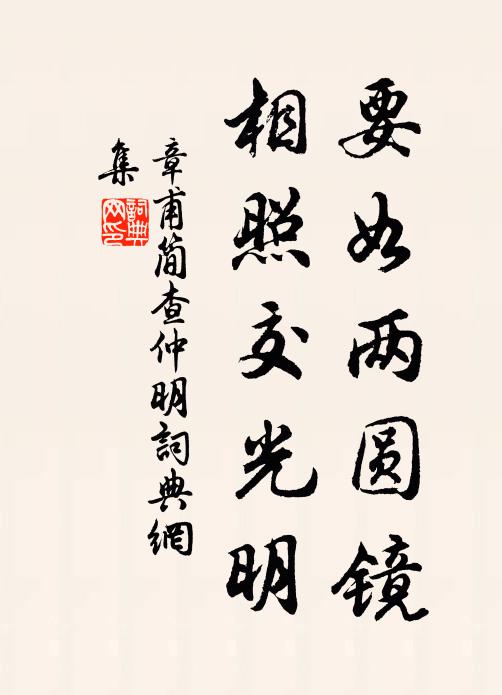 要如两圆镜
相照交光明
章甫简查仲明詞典網
集
詞典网印